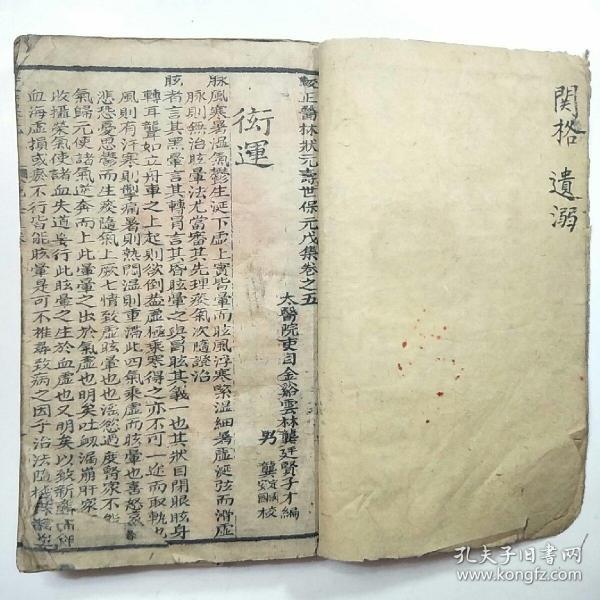 関格 遺溺
校正醫林狀元壽世保元戊集卷之五
太醫院吏目金谿雲林龔廷賢子才編
男 龔 定國 安國 校
衒運
脉風寒暑湿氣鬱生涎下虛上實皆暈而眩風浮寒緊湿細暑虛涎弦而滑虛
脉則無治眩暈法尤當審其先理痰氣次隨證治
眩者言其黑暈言其轉冐言其昏眩暈之與冐眩其義一也其狀目閉眼眩身
轉耳聾如立舟車之上起則欲倒盖虛極乘寒得之亦不可一途而取軌也
風則有汗寒則掣痛暑則熱悶湿則重滯此四氣乘虛而眩暈也喜怒哀
悲恐憂思鬱而生痰隨氣上厥七情致虛眩暈也也淫慾過度腎家不能
氣歸元使諸氣逆奔而上此暈暈之出於氣虛也明矣吐衂漏崩肝家
收攝榮氣使諸血失道妄行此眩暈之生於血虛也又明矣以致新產
血海虛損或瘀不行皆能眩暈是可不推尋致病之因乎治法隨機
孔夫子旧书网
www.kongfz.com